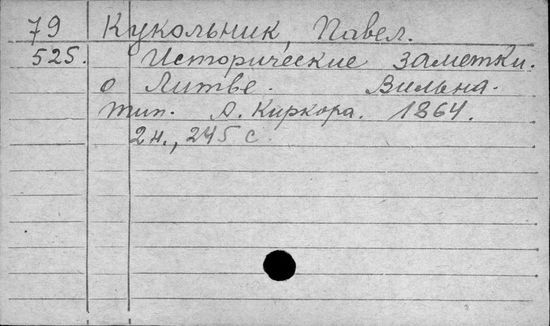 79 Кукольник, Павел.
525. Исторические заметки.
о Литве. Вильна.
тип. А. Киркора. 1864.
2н., 245 с.